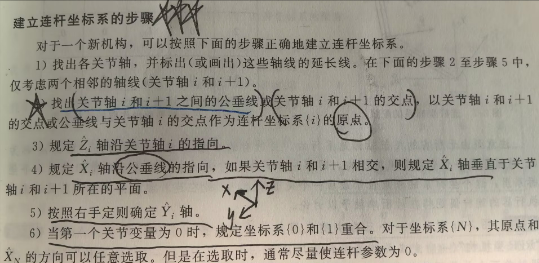 建立连杆坐标系的步骤
对于一个新机构，可以按照下面的步骤正确地建立连杆坐标系。
1）找出各关节轴，并标出（或画出）这些轴线的延长线。在下面的步骤 2 至步骤 5 中，
仅考虑两个相邻的轴线（关节轴 i 和 i+1）。
找出关节轴 i 和 i+1 之间的公垂线或关节轴 i 和 i+1 的交点，以关节轴 i 和 i+1
的交点或公垂线与关节轴 i 的交点作为连杆坐标系{i}的原点。
3）规定 Ẑi 轴沿关节轴 i 的指向。
4）规定 X̂i 轴沿公垂线的指向，如果关节轴 i 和 i+1 相交，则规定 X̂i 轴垂直于关节
轴 i 和 i+1 所在的平面。
X Z
y
5）按照右手定则确定 Ŷi 轴。
6）当第一个关节变量为 0 时，规定坐标系{0}和{1}重合。对于坐标系{N}，其原点和
X̂N 的方向可以任意选取。但是在选取时，通常尽量使连杆参数为 0。